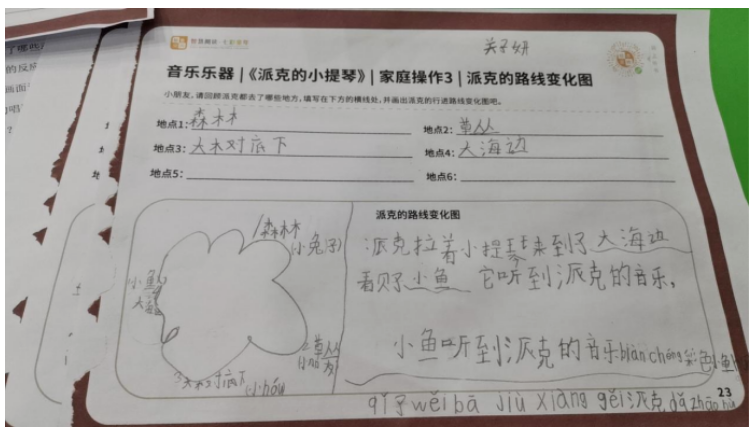 关子妍
音乐乐器 | 《派克的小提琴》 | 家庭操作3 | 派克的路线变化图
小朋友，请回顾派克都去了哪些地方，填写在下方的横线处，并画出派克的行进路线变化图吧。
地点1：森林 地点2：草丛
地点3：大木对底下 地点4：大海边
地点5： 地点6：
派克的路线变化图
1森林
(小兔子)
小鱼
大海
2草丛
3大木对底下
派克拉着小提琴来到了大海边
看见了小鱼 它听到派克的音乐，
小鱼听到派克的音乐biàn chéng彩色小鱼
wěi bā jiù xiàng gěi派克dǎ zhāo hu
23